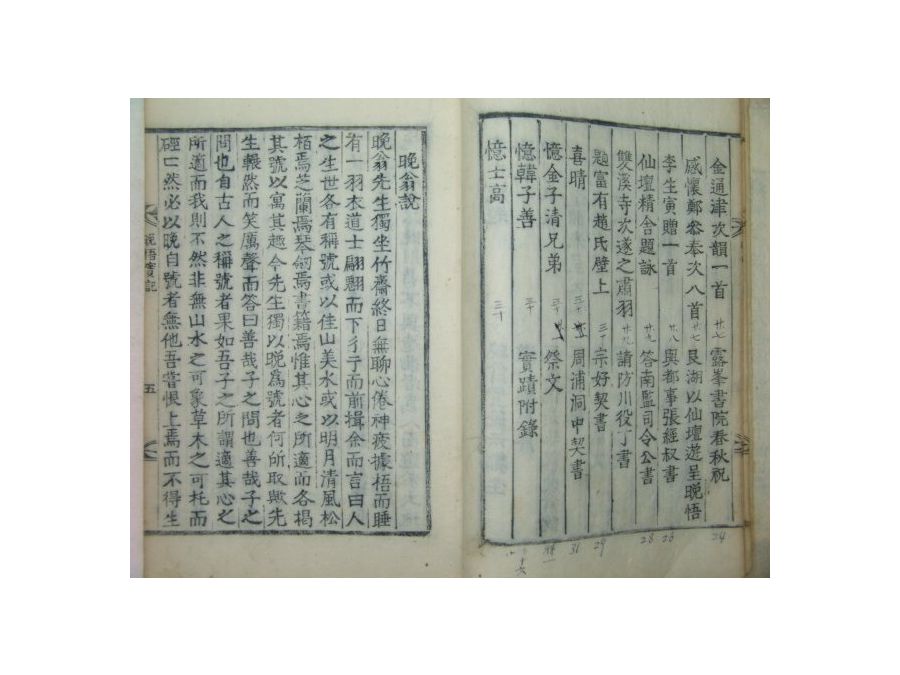 金通津次韻一首 廿七 露峯書院春秋祝 24
感懷鄭參奉次八首 廿七 艮湖以仙壇遊呈晩悟
李生寅贈一首 廿八 與都事張經叔書 23
仙壇精舍題詠 廿九 答南監司令公書 28
雙溪寺次遂之肅羽 廿九 請防川役丁書
題富有趙氏壁上 三十 宗好契書 29
喜晴 周浦洞中契書 31
憶金子清兄弟 祭文
憶韓子善 實蹟附錄
憶士高 三十
晩翁說
晩翁先生獨坐竹齋終日無聊心倦神疲據梧而睡
有一羽衣道士翩翩而下彳亍而前揖余而言曰人
之生世各有稱號或以佳山美水或以明月清風松
栢焉芝蘭焉琴劒焉書籍焉惟其心之所適而各揭
其號以寓其趣今先生獨以晩爲號者何所取歟先
生冁然而笑厲聲而答曰善哉子之問也善哉子之
問也自古人之稱號者果如吾子之所謂適其心之
所適而我則不然非無山水之可象草木之可托而
硜硜然必以晩自號者無他吾嘗恨上焉而不得生
晩悟實記
五